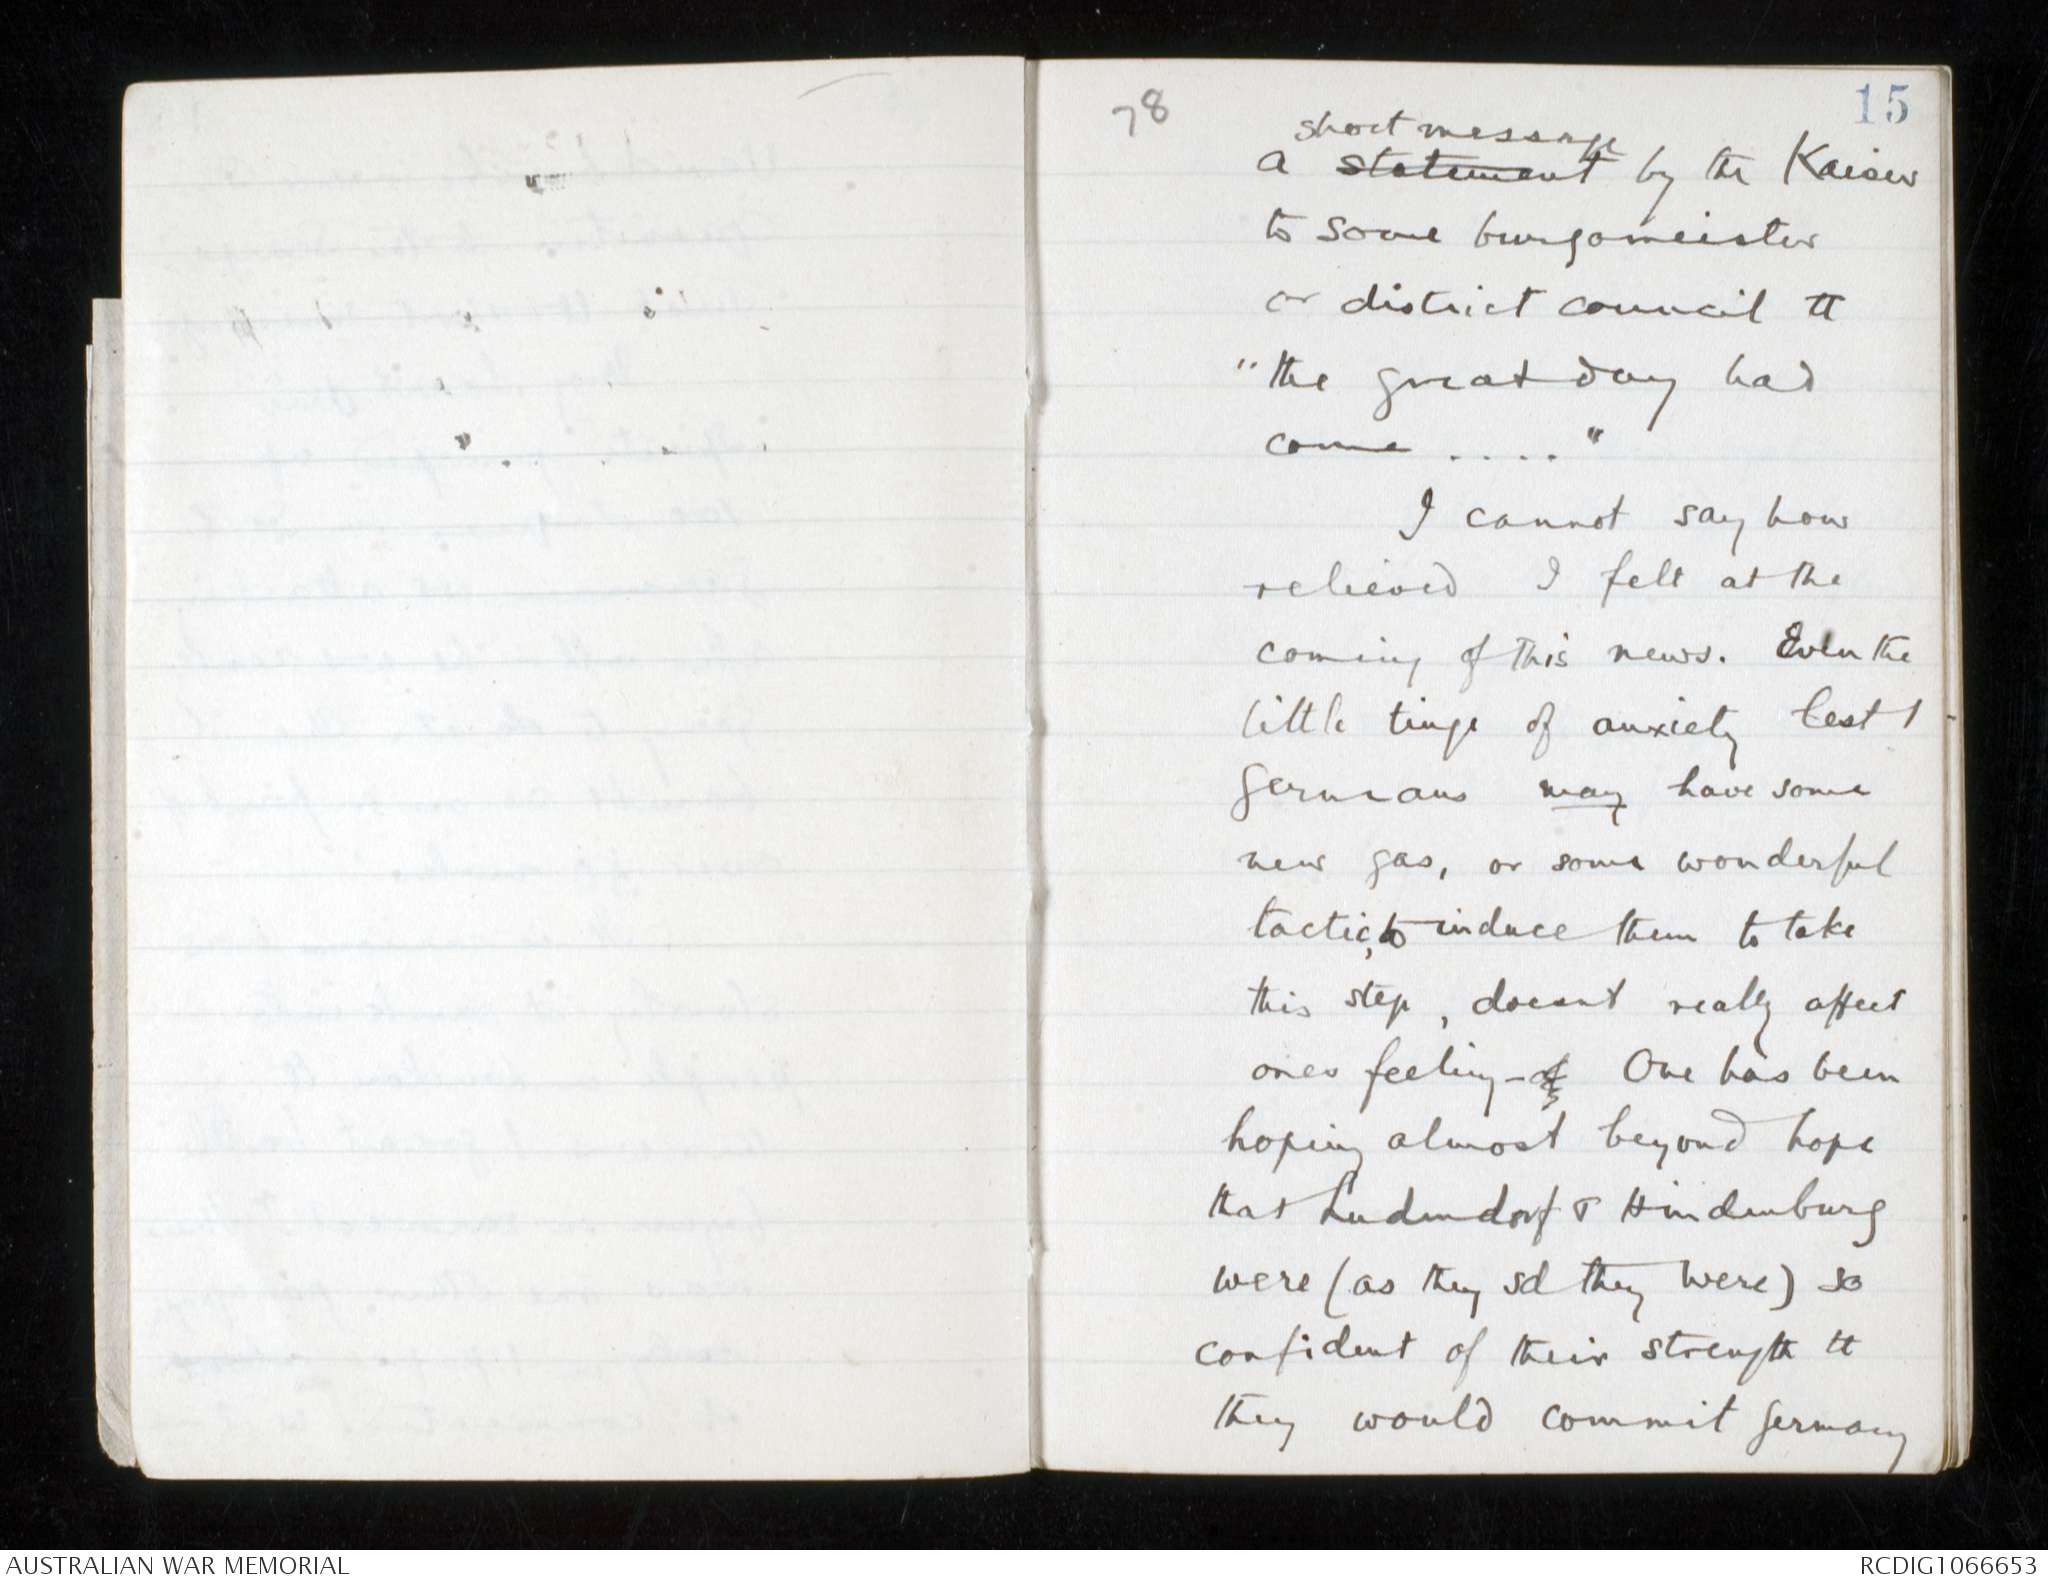 78
15
short message
a statement by the Kaiser
to some burgomeister
or district council tt
"the great day had
come ...."
I cannot say how
relieved I felt at the
coming of this news. Even the
little tinge of anxiety lest /
Germans may have some
new gas, or some wonderful
tactic, to induce them to take
this step, doesnt really affect
ones feeling - One has been
hoping almost beyond hope
that Ludendorf & Hindenburg
were (as they sd they were) so
confident of their strength tt
they would commit Germany
AUSTRALIAN WAR MEMORIAL
RCDIG1066653